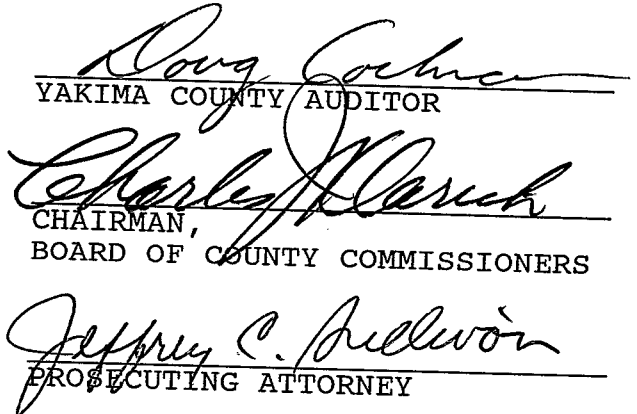 Doug Cochran
YAKIMA COUNTY AUDITOR
Charles J Klarich
CHAIRMAN,
BOARD OF COUNTY COMMISSIONERS
Jeffrey C. Sullivan
PROSECUTING ATTORNEY